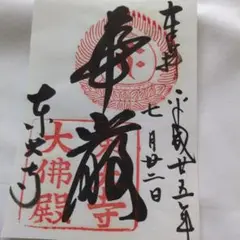 奉拝
平成廿五年
七月廿二日
華厳
東大寺
大佛殿